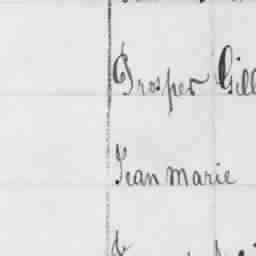 Prosper Gill
Jean Marie